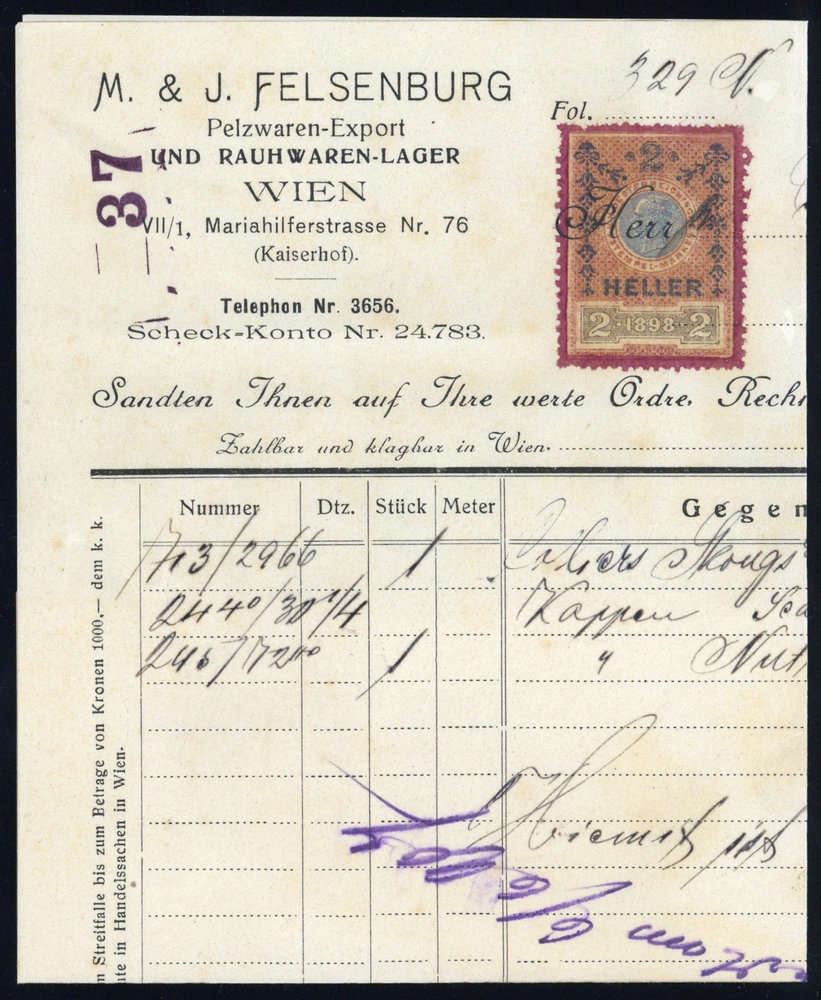 M. & J. FELSENBURG
Pelzwaren-Export
UND RAUHWAREN-LAGER
WIEN
VII/1, Mariahilferstrasse Nr. 76
(Kaiserhof).
Telephon Nr. 3656.
Scheck-Konto Nr. 24.783.
37
329
Fol.
Herr
2
HELLER
2 · 1898 · 2
Sandten Ihnen auf Ihre werte Ordre, Rechn
Zahlbar und klagbar in Wien.
Nummer Dtz. Stück Meter Gegen
713/2966 1
2440/30 1/4 Kappen
245/7200 1 " Nut
n Streitfalle bis zum Betrage von Kronen 1000,— dem k. k.
te in Handelssachen in Wien.